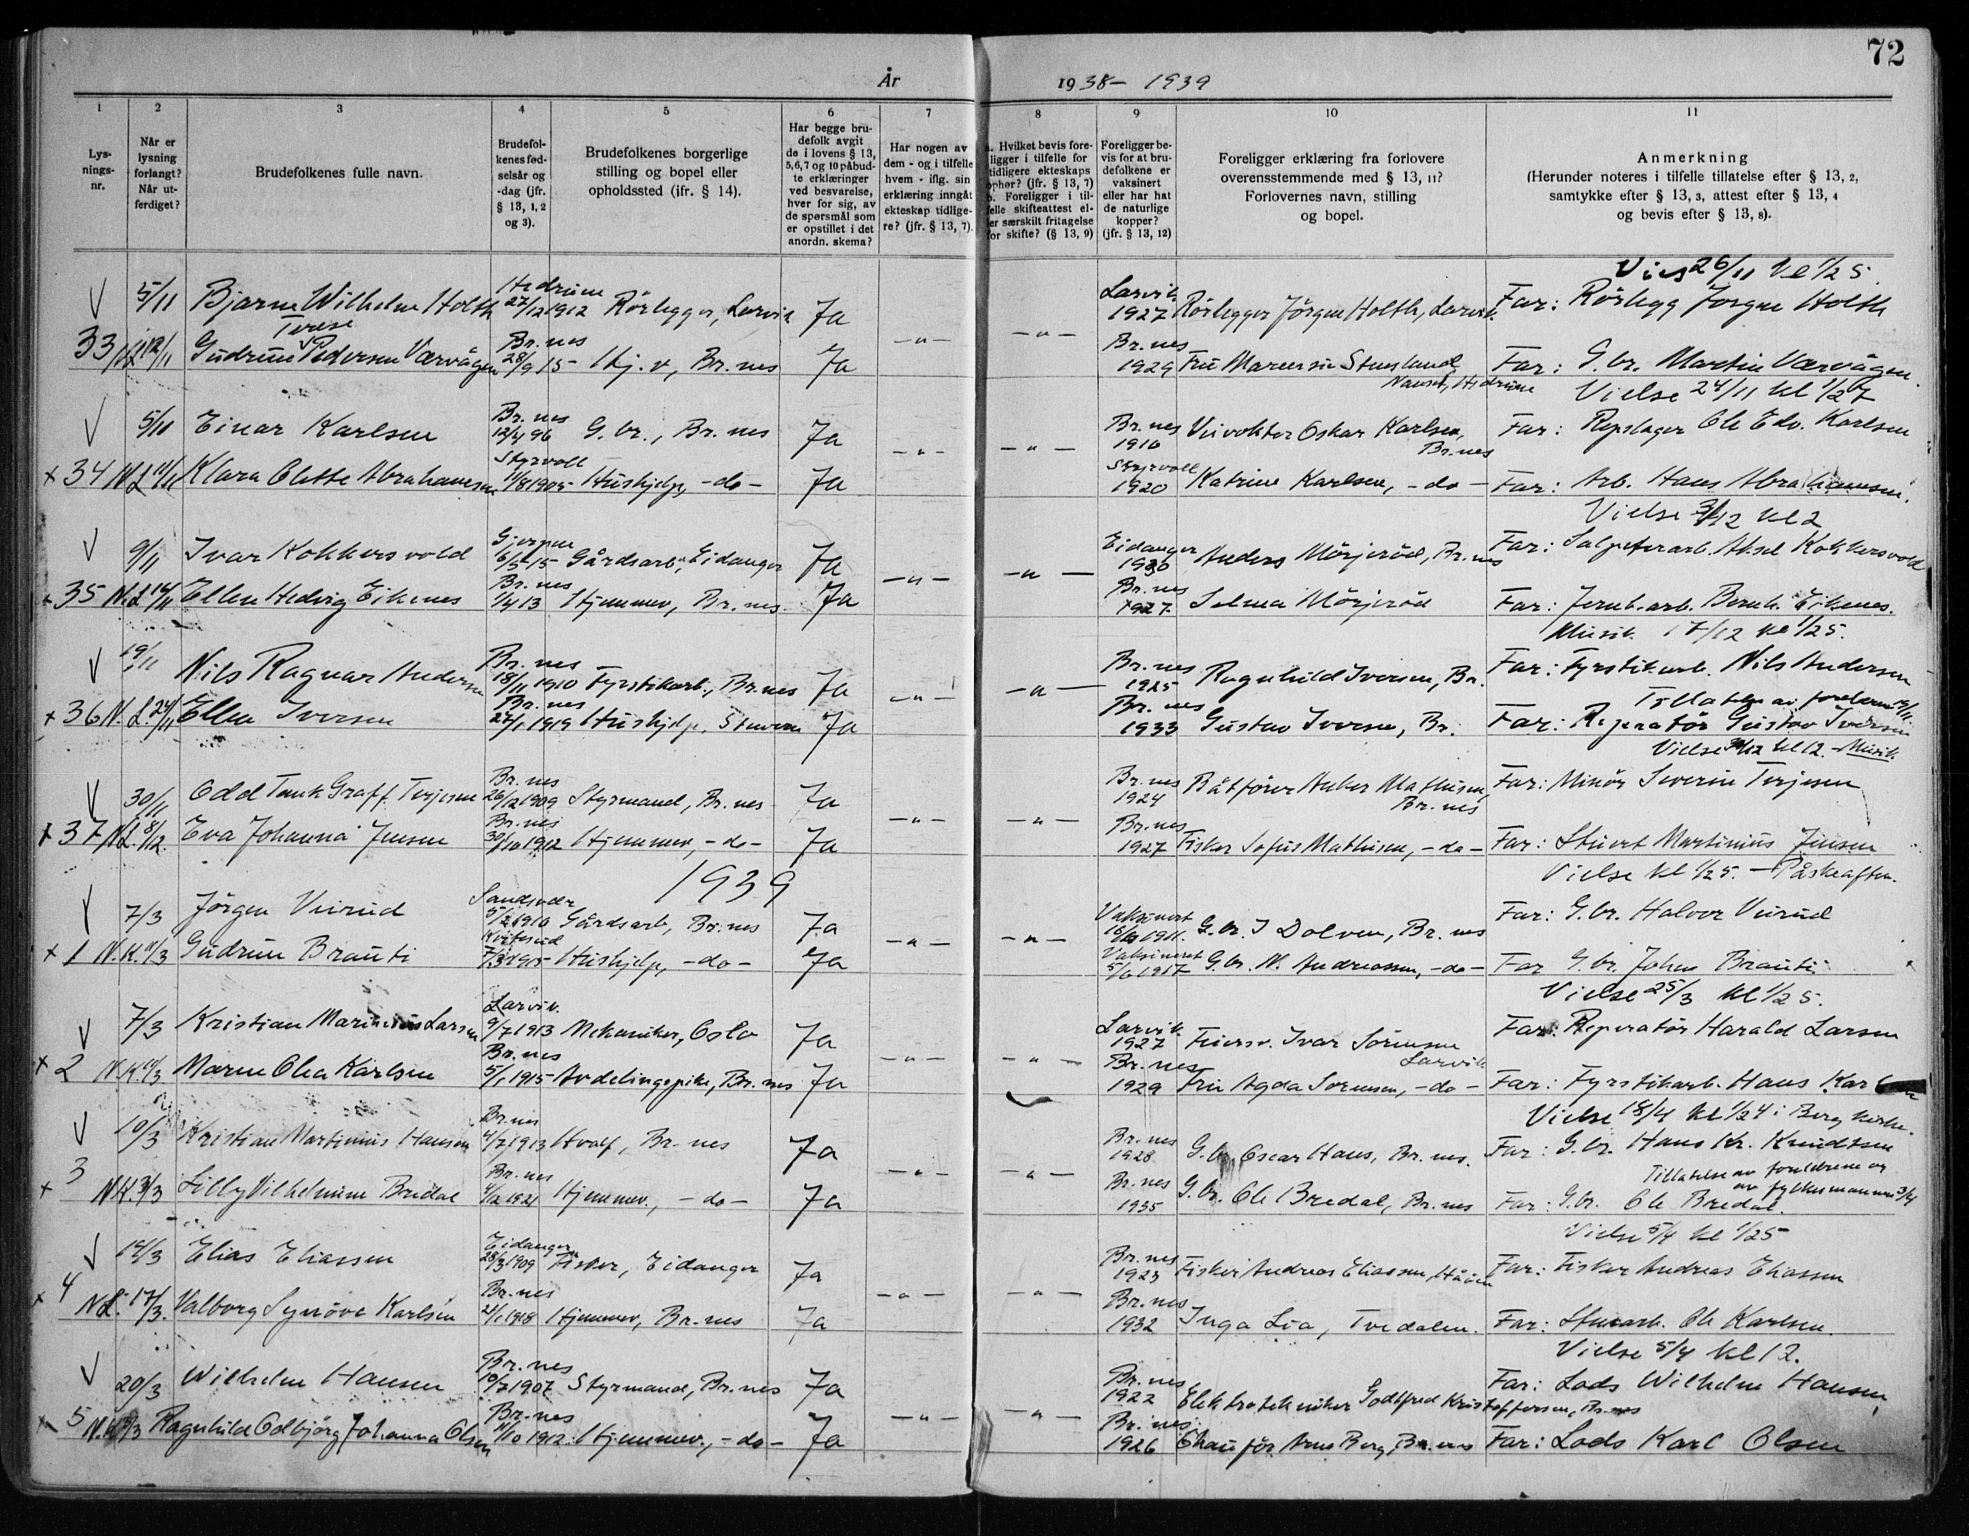 72
År 1938 - 1939
1 2 3 4 5 6 7 8 9 10 11
Lysningsnr.
Når er lysning forlangt? Når utferdiget?
Brudefolkenes fulle navn.
Brudefolkenes fødselsår og -dag (jfr. § 13, 1, 2 og 3).
Brudefolkenes borgerlige stilling og bopel eller opholdssted (jfr. § 14).
Har begge brudefolk avgit de i lovens § 13, 5, 6, 7 og 10 påbudte erklæringer ved besvarelse, hver for sig, av de spørsmål som er opstillet i det anordn. skema?
Har nogen av dem - og i tilfelle hvem - iflg. sin erklæring inngått ekteskap tidligere? (jfr. § 13, 7).
a. Hvilket bevis foreligger i tilfelle for tidligere ekteskaps ophør? (jfr. § 13, 7) b. Foreligger i tilfelle skifteattest eller særskilt fritagelse for skifte? (§ 13, 9)
Foreligger bevis for at brudefolkene er vaksinert eller har hat de naturlige kopper? (jfr. § 13, 12)
Foreligger erklæring fra forlovere overensstemmende med § 13, 11? Forlovernes navn, stilling og bopel.
Anmerkning (Herunder noteres i tilfelle tillatelse efter § 13, 2, samtykke efter § 13, 3, attest efter § 13, 4 og bevis efter § 13, 8).
Vies 26/11 kl 1/2 5.
V 5/11 Bjarne Wilhelm Holth Hedrum 27/12 1912 Rörlegger, Larvik Ja Larvik 1927 Rörlegger Jörgen Holth, Larvik Far: Rörlegg Jörgen Holth
33 12/11 Gudrun Pedersen Værvågen Br.nes 28/9 15 Hj. v, Br.nes Ja - " - - " - Br.nes 1929 Fru Nanset, Hedrum Far: G.br. Martin Værvågen.
Vielse 24/11 kl 1/2 7
V 5/11 Einar Karlsen Br.nes 12/4 96 G.br., Br.nes Ja Br.nes 1910 Oskar Karlsen, Br.nes Far: Repslager Ole Edv. Karlsen
x 34 N.L 11/11 Klara Olette Abrahamsen Styrvoll 11/8 1905 Hushjelp, -do- Ja - " - - " - Styrvoll 1920 Katrine Karlsen, -do- Far: Arb. Hans Abrahamsen.
Vielse 3/12 kl 2
V 9/11 Ivar Kokkersvold Gjerpen 6/5 15 Gårdsarb., Eidanger Ja Eidanger 1930 Anders Mörjeröd, Br.nes Far: Salpeterarb. Aksel Kokkersvold
x 35 N.L 14/11 Ellen Hedvig Eikenes Br.nes 1/4 13 Hjemmev, Br.nes Ja - " - - " - Br.nes 1927 Selma Mörjeröd Far: Jernb.arb. Bernh. Eikenes.
Musik 17/12 kl 1/2 5.
V 19/11 Nils Ragnar Andersen Br.nes 18/11 1910 Fyrstikarb., Br.nes Ja Br.nes 1925 Ragnhild Iversen, Br. Far: Fyrstikarb. Nils Andersen
Tillatelse av foreldrene
x 36 N.L. 24/11 Ellen Iversen Br.nes 27/1 1919 Hushjelp, Stavern Ja - " - - " - Br.nes 1933 Gustav Iversen, Br. Far: Reperatör Gustav Iversen
Vielse kl 12 - Musik
V 30/11 Odd Tank Graff Terjesen Br.nes 26/12 1909 Styrmand, Br.nes Ja Br.nes 1924 Båtförer Mathisen, Br.nes Far: Minör Severin Terjesen
x 37 N.L. 8/12. Eva Johanna Jensen Br.nes 30/10 1912 Hjemmev, -do- Ja - " - - " - Br.nes 1927 Fisker Sofus Mathisen, -do- Far: Stuert Martinius Jensen
1939
Vielse kl 1/2 5. - Påskeaften.
V 7/3 Jörgen Sandsvær 5/2 1910 Gårdsarb, Br.nes Ja Vaksinert 1911. G.br. J Dolven, Br.nes Far: G.br. Halvor
x 1 N.K. 11/3 Gudrun Brauti Kviteseid 7/3 1915 Hushjelp, -do- Ja - " - - " - Vaksineret 1917 G.br. N. Andreassen, -do- Far G.br. Johan Brauti
Vielse 25/3 kl 1/2 5.
V 7/3 Kristian Marinius Larsen Larvik. 9/7 1913 Mekaniker, Oslo Ja Larvik 1927 Ivar Sörensen Larvik Far: Reperatör Harald Larsen
x 2 N.K. 11/3 Maren Olea Karlsen Br.nes 5/1 1915 Avdelingspike, Br.nes Ja - " - - " - Br.nes 1929 Fru Agda Sörensen, -do- Far: Fyrstikarb. Hans Karlsen
Vielse 18/4 kl 1/2 4 i Berg kirke.
V 10/3 Kristian Martinius Hansen Br.nes 4/7 1913 Hvalf, Br.nes Ja Br.nes 1928 G.br. Oscar Hans, Br.nes. Far: G.br. Hans Kr. Knudtsen
Tillatelse av foreldrene og av fylkesmannen 3/4
x 3 N.K. 31/3 Lilly Vilhelmine Bredal Br.nes 4/2 1921 Hjemmev., -do- Ja - " - - " - Br.nes 1935 G.br. Ole Bredal, Br.nes Far: G.br. Ole Bredal.
Vielse 5/4 kl 1/2 5
V 14/3 Elias Eliassen Eidanger 28/3 1909 Fisker, Eidanger Ja Br.nes 1923 Fisker Andreas Eliassen, Håöen Far: Fisker Andreas Eliassen
x 4 N.L. 17/3. Valborg Synöve Karlsen Br.nes 21/1 1918 Hjemmev, Br.nes Ja - " - - " - Br.nes 1932 Inga Lia, Tvedalen. Far: Ole Karlsen.
Vielse 5/4 kl 12.
V 20/3 Wilhelm Hansen Br.nes 10/7 1907 Styrmand, Br.nes Ja Br.nes 1922 Elektrotekniker Godtfred Kristoffersen, Br.nes Far: Lods Wilhelm Hansen
x 5 N.K. Ragnhild Odbjörg Johanna Olsen Br.nes 11/10 1912 Hjemmev, -do- Ja - " - - " - Br.nes 1926 Chauför Arne Berg, Br.nes Far: Lods Karl Olsen